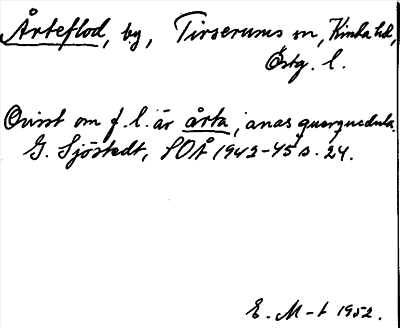 Årteflod, by, Tirserums sn, Kinda hd,
Östg. l.
Ovisst om f. l. är årta, 'anas querquedula.
G. Sjöstedt, SOÅ 1942-45 s. 24.
E. M-t 1952.